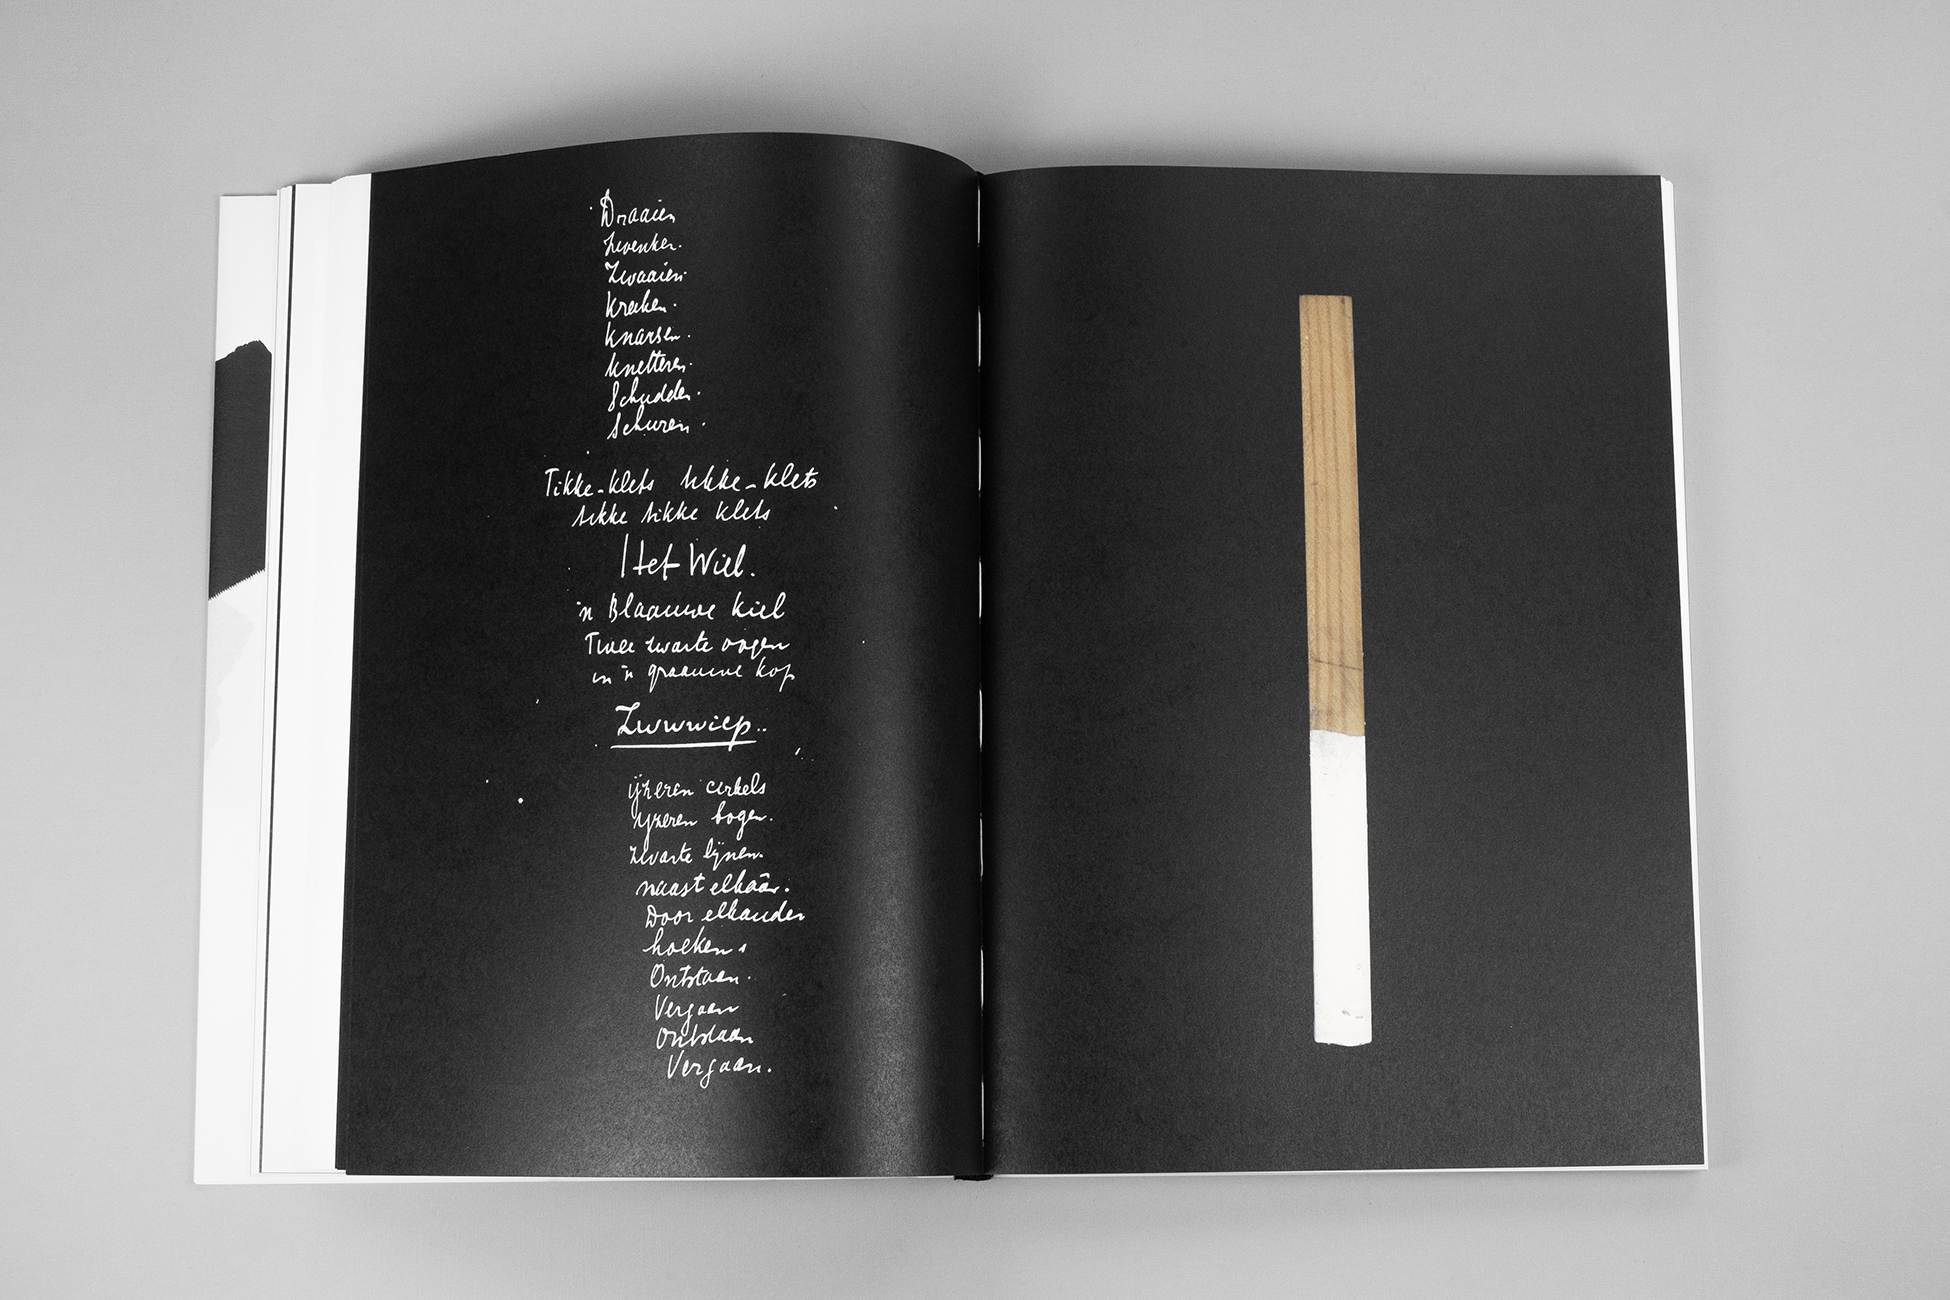 Draaien
Zwenken.
Zwaaien.
Kraken.
Knarsen.
Knetteren.
Schudden.
Schuren.
Tikke-klets tikke-klets
tikke tikke klets
Het Wiel.
'n Blaauwe kiel
Twee zwarte oogen
in 'n graauwe kop
Zwwwiep..
ijzeren cirkels
ijzeren bogen.
zwarte lijnen.
naast elkaâr.
Door elkander
hoeken
Ontstaan.
Vergaan
Ontstaan
Vergaan.